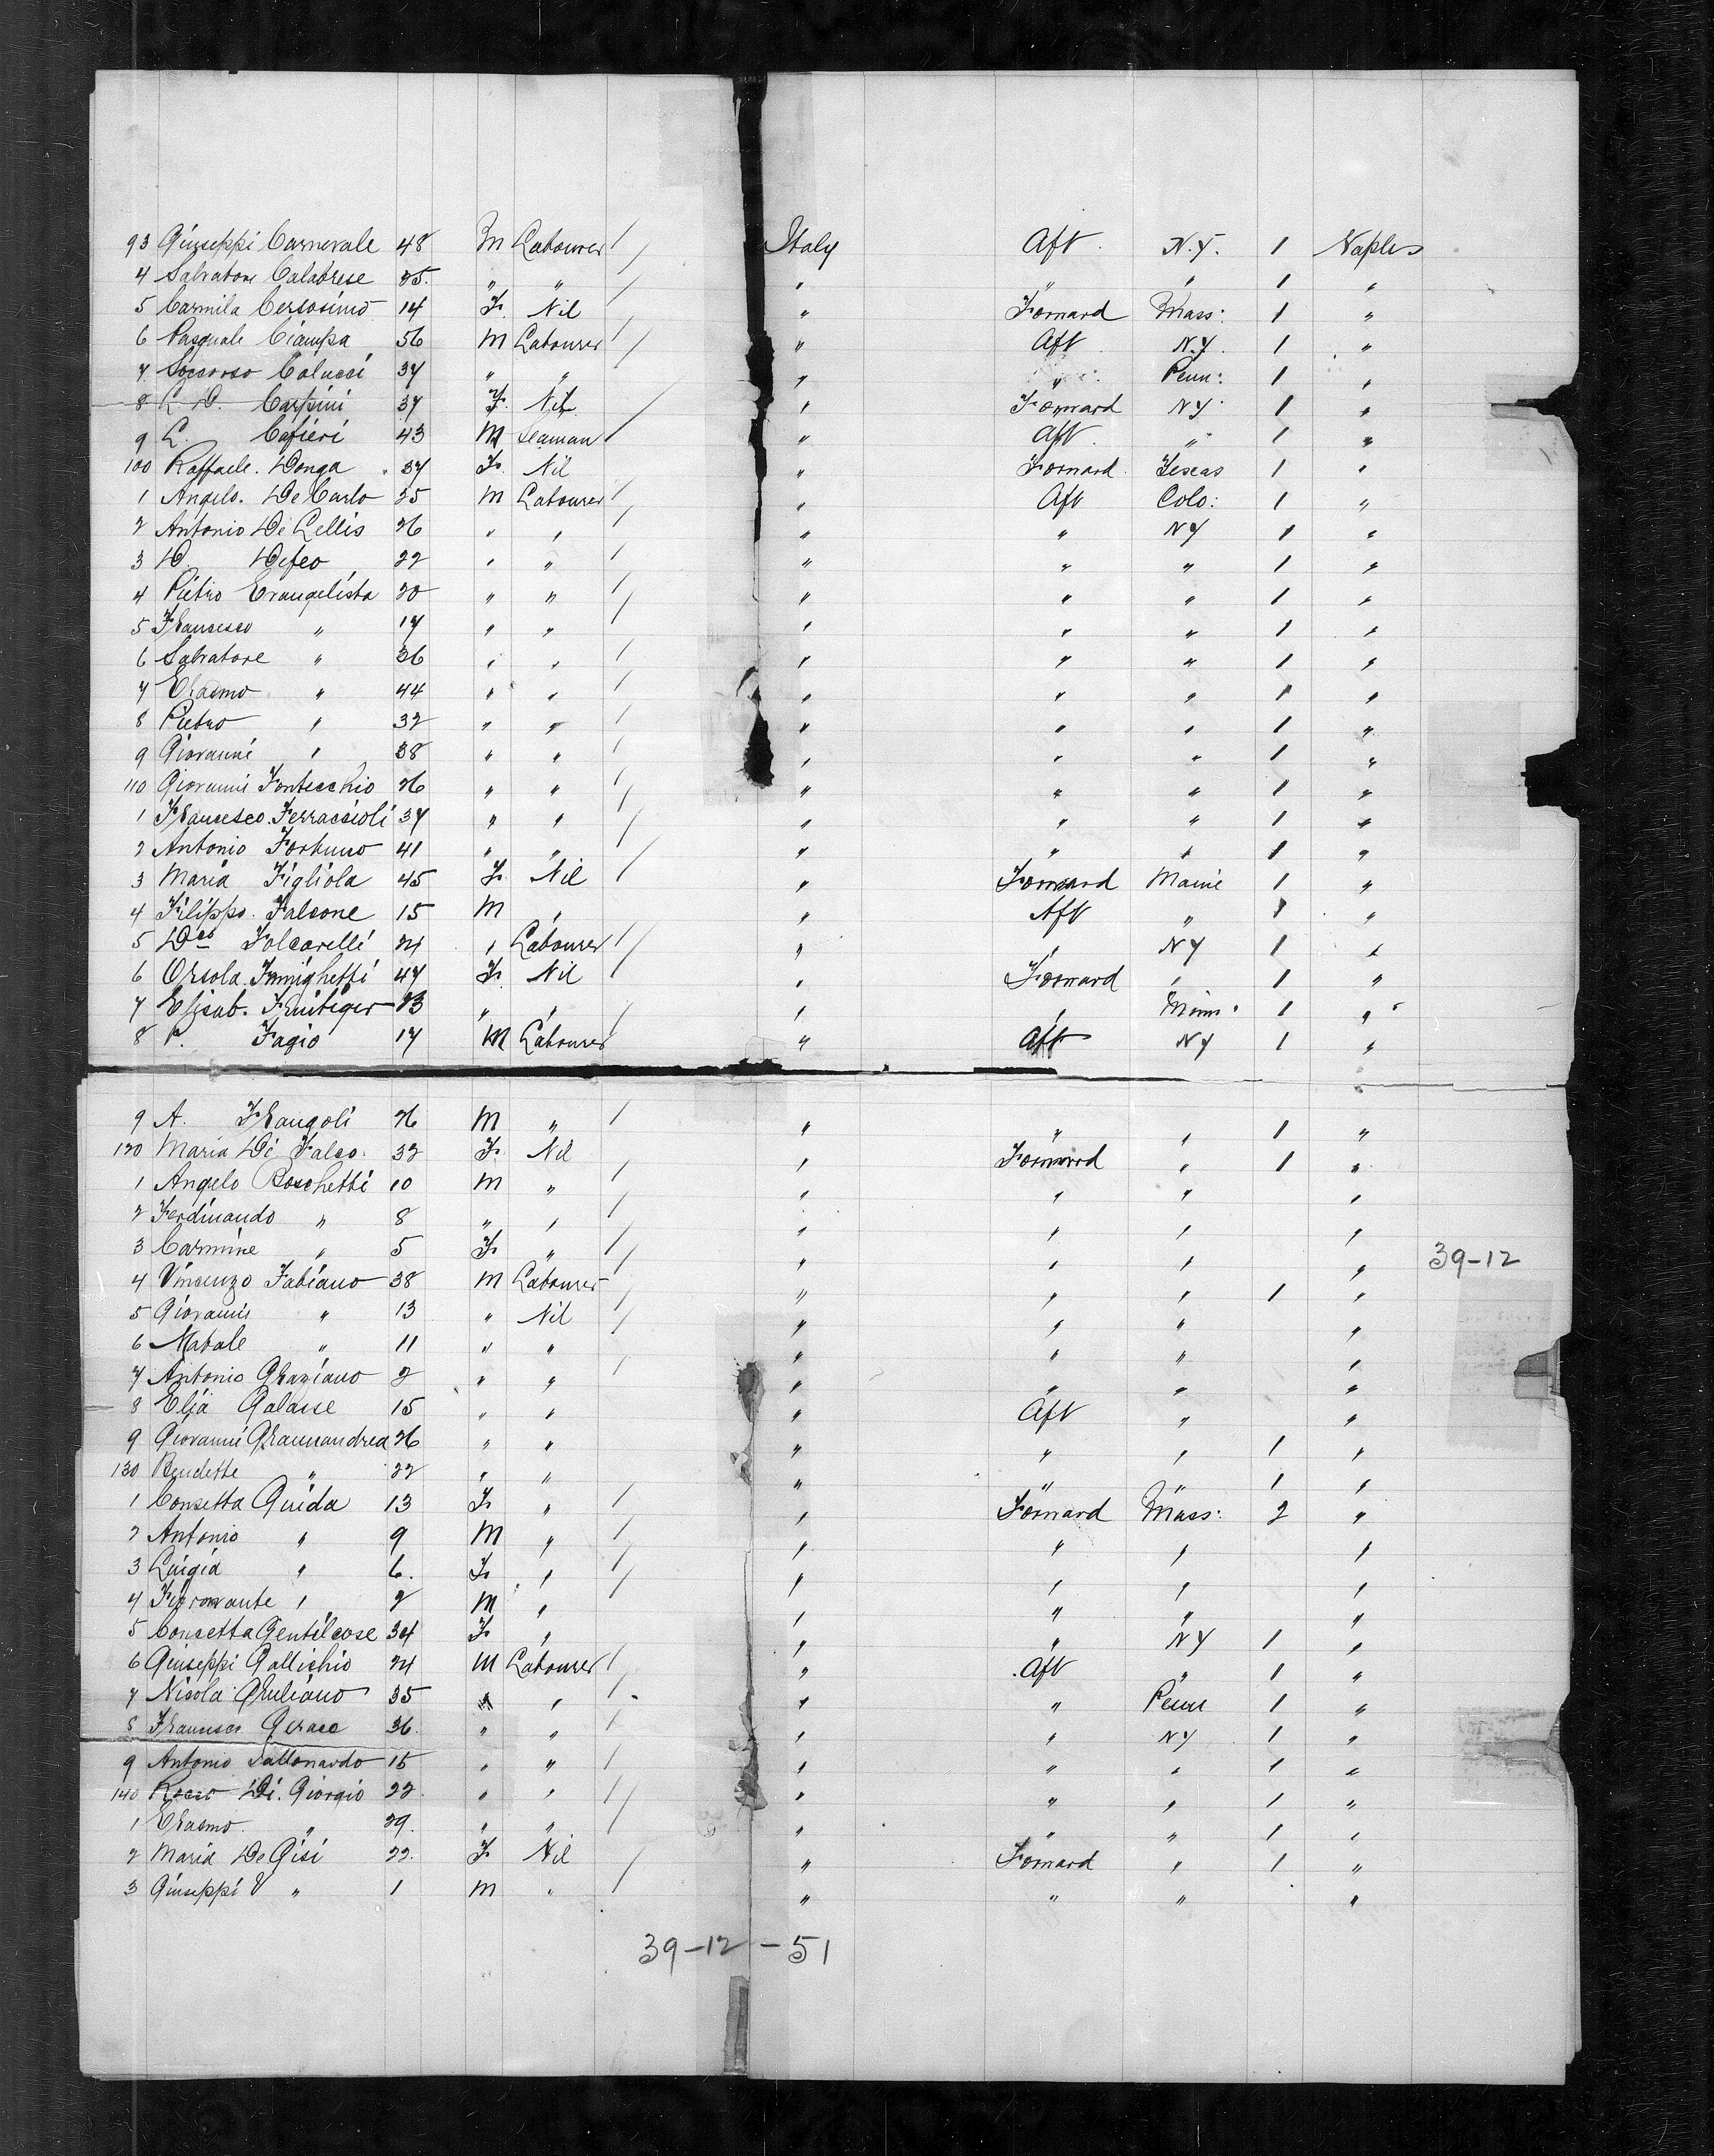 93 Giuseppi Carnevale 48 M Labourer / Italy Aft N.Y. 1 Naples
4 Salvatore Calabrese 25. " " / " " " 1 "
5 Carmila Cersosimo 14 F. Nil " Forward Mass: 1 "
6 Pasquale Ciampa 56 M Labourer / " Aft N.Y. 1 "
7 Soccorso Colucci 37 " " " " Penn: 1 "
8 L. D. Carpini 37 F. Nil / " Forward NY 1 "
9 L. Cafieri 43 M Seaman / " Aft " 1 "
100 Raffaele. Donga 37 F. Nil " Forward Texas 1 "
1 Angelo. De Carlo 25 M Labourer / " Aft Colo: 1 "
2 Antonio De Lellis 26 " " / " " NY 1 "
3 D. Defeo 22 " " / " " " 1 "
4 Pietro Evangelista 20 " " / " " " 1 "
5 Francesco " 17 " " / " " " 1 "
6 Salvatore " 36 " " / " " " 1 "
7 Erasmo " 44 " " / " " " 1 "
8 Pietro " 32 " " / " " " 1 "
9 Giovanni " 38 " " / " " " 1 "
110 Giovanni Fontecchio 26 " " / " " " 1 "
1 Francesco. Ferraccioli 37 " " / " " " 1 "
2 Antonio Fortuno 41 " " / " " " 1 "
3 Maria Figliola 45 F. Nil / " Forward Maine 1 "
4 Filippo. Falcone 15 M " " Aft " 1 "
5 Dco Folcarelli 24 " Labourer / " " NY 1 "
6 Orsola 47 F. Nil / " Forward " 1 "
7 Elisab. Frutiger 23 " " / " " Minn: 1 "
8 P. Fagio 17 M Labourer " Aft NY 1 "
9 A. Frangoli 26 M " / " " " 1 "
120 Maria Di Falco. 32 F. Nil " Forward " 1 "
1 Angelo Boschetti 10 M " / " " " "
2 Ferdinando " 8 " " / " " " "
3 Carmine " 5 F. " / " " " " 39-12
4 Vincenzo Fabiano 38 M Labourer " " " 1 "
5 Giovanni " 13 " Nil / " " " "
6 Natale " 11 " " " " " "
7 Antonio Graziano 2 " " / " " " "
8 Elja Galasse 15 " " " Aft " "
9 Giovanni Grannandrea 26 " " " " " 1 "
130 Bendette " 22 " " " " " 1 "
1 Consetta Guida 13 F. " / " Forward Mass: 2 "
2 Antonio " 9 M " / " " " "
3 Luigia " 6. F. " / " " " "
4 " 2 M " " " " "
5 Concetta Gentilcose 34 F. " " " NY 1 "
6 Giuseppi Gallichio 24 M Labourer / " Aft " 1 "
7 Nicola Giuliano 35 " " / " " Penn 1 "
8 Francesco Gerace 36. " " / " " NY 1 "
9 Antonio Dallonardo 15 " " / " " " 1 "
140 Rocco Di. Giorgio 22. " " / " " " 1 "
1 Erasmo " 29. " " / " " " 1 "
2 Maria De Gisi 22. F Nil " Forward " 1 "
3 Giuseppi V " 1 M " / " " " "
39-12-51